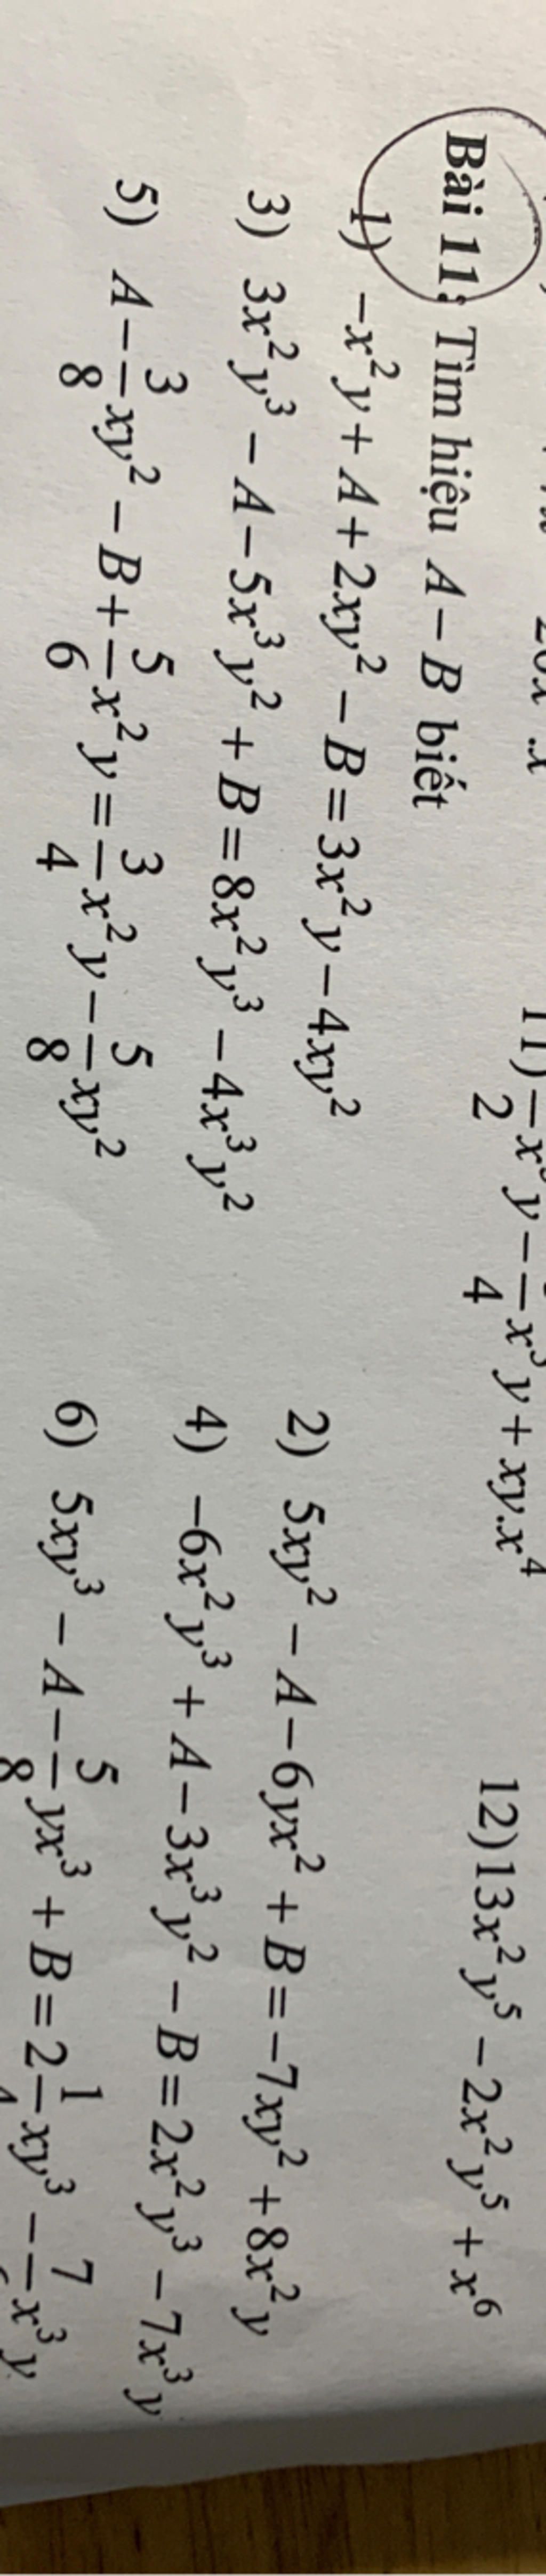 11) —x y − —x³y + xy.x⁴ 12)13x²y⁵ − 2x²y⁵ + x⁶
Bài 11: Tìm hiệu A − B biết
1) −x²y + A + 2xy² − B = 3x²y − 4xy²
2) 5xy² − A − 6yx² + B = −7xy² + 8x²y
3) 3x²y³ − A − 5x³y² + B = 8x²y³ − 4x³y²
4) −6x²y³ + A − 3x³y² − B = 2x²y³ − 7x³y
5) A − 3/8 xy² − B + 5/6 x²y = 3/4 x²y − 5/8 xy²
6) 5xy³ − A − 5/8 yx³ + B = 2 1/4 xy³ − 7 x³y